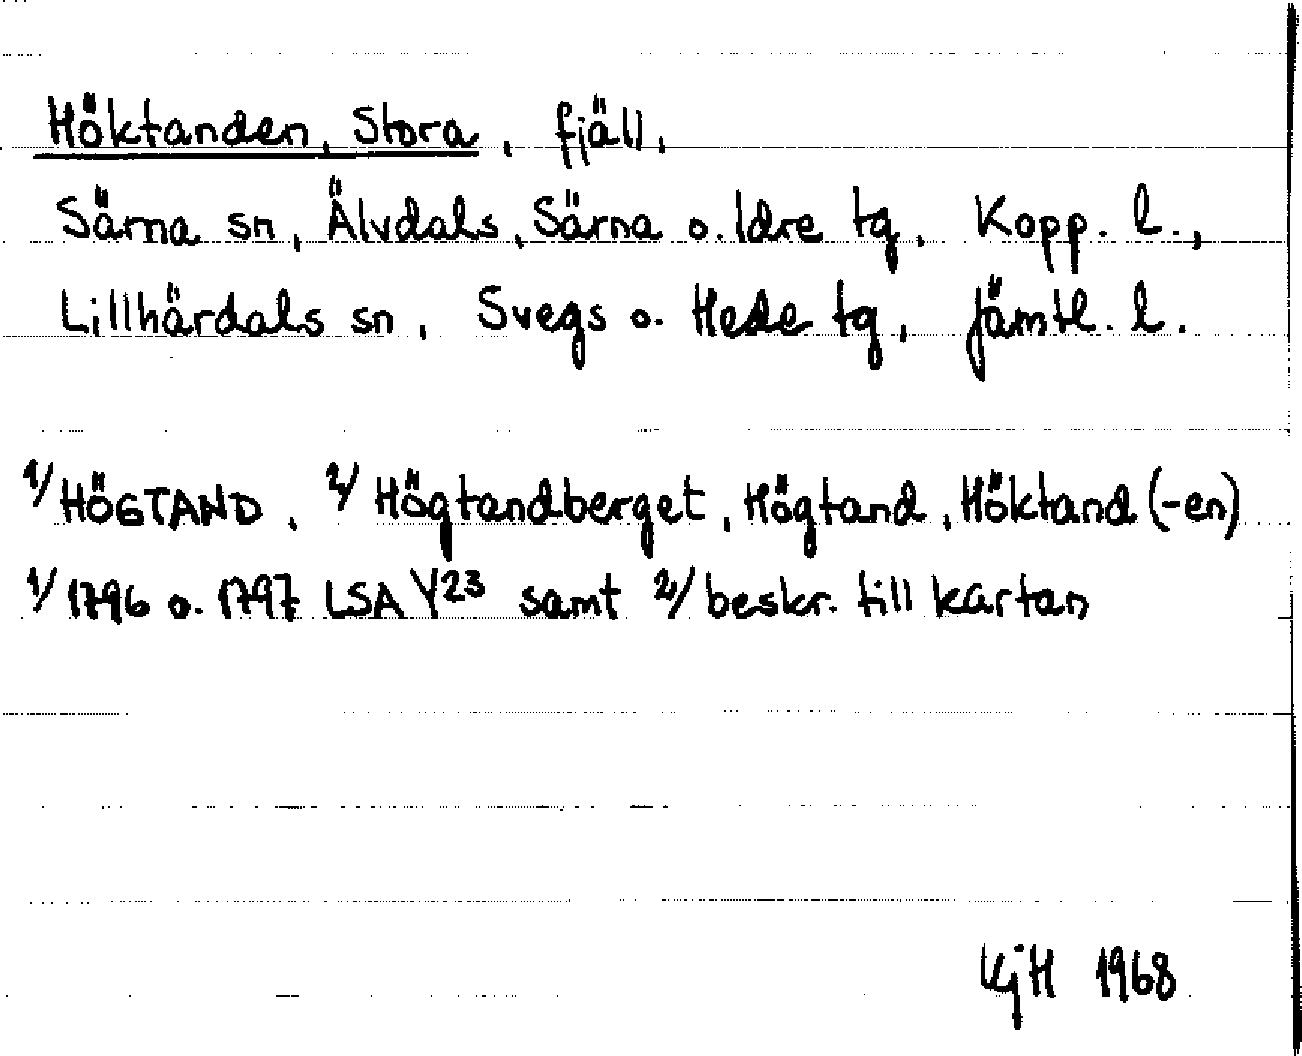 Höktanden, Stora, fjäll,
Särna sn, Älvdals, Särna o. Idre tg, Kopp. l.,
Lillhärdals sn, Svegs o. Hede tg, Jämtl. l.
1/ HÖGTAND, 2/ Högtandberget, Högtand, Höktand (-en)
1/ 1796 o. 1797 LSA Y23 samt 2/ beskr. till kartan
KjH 1968